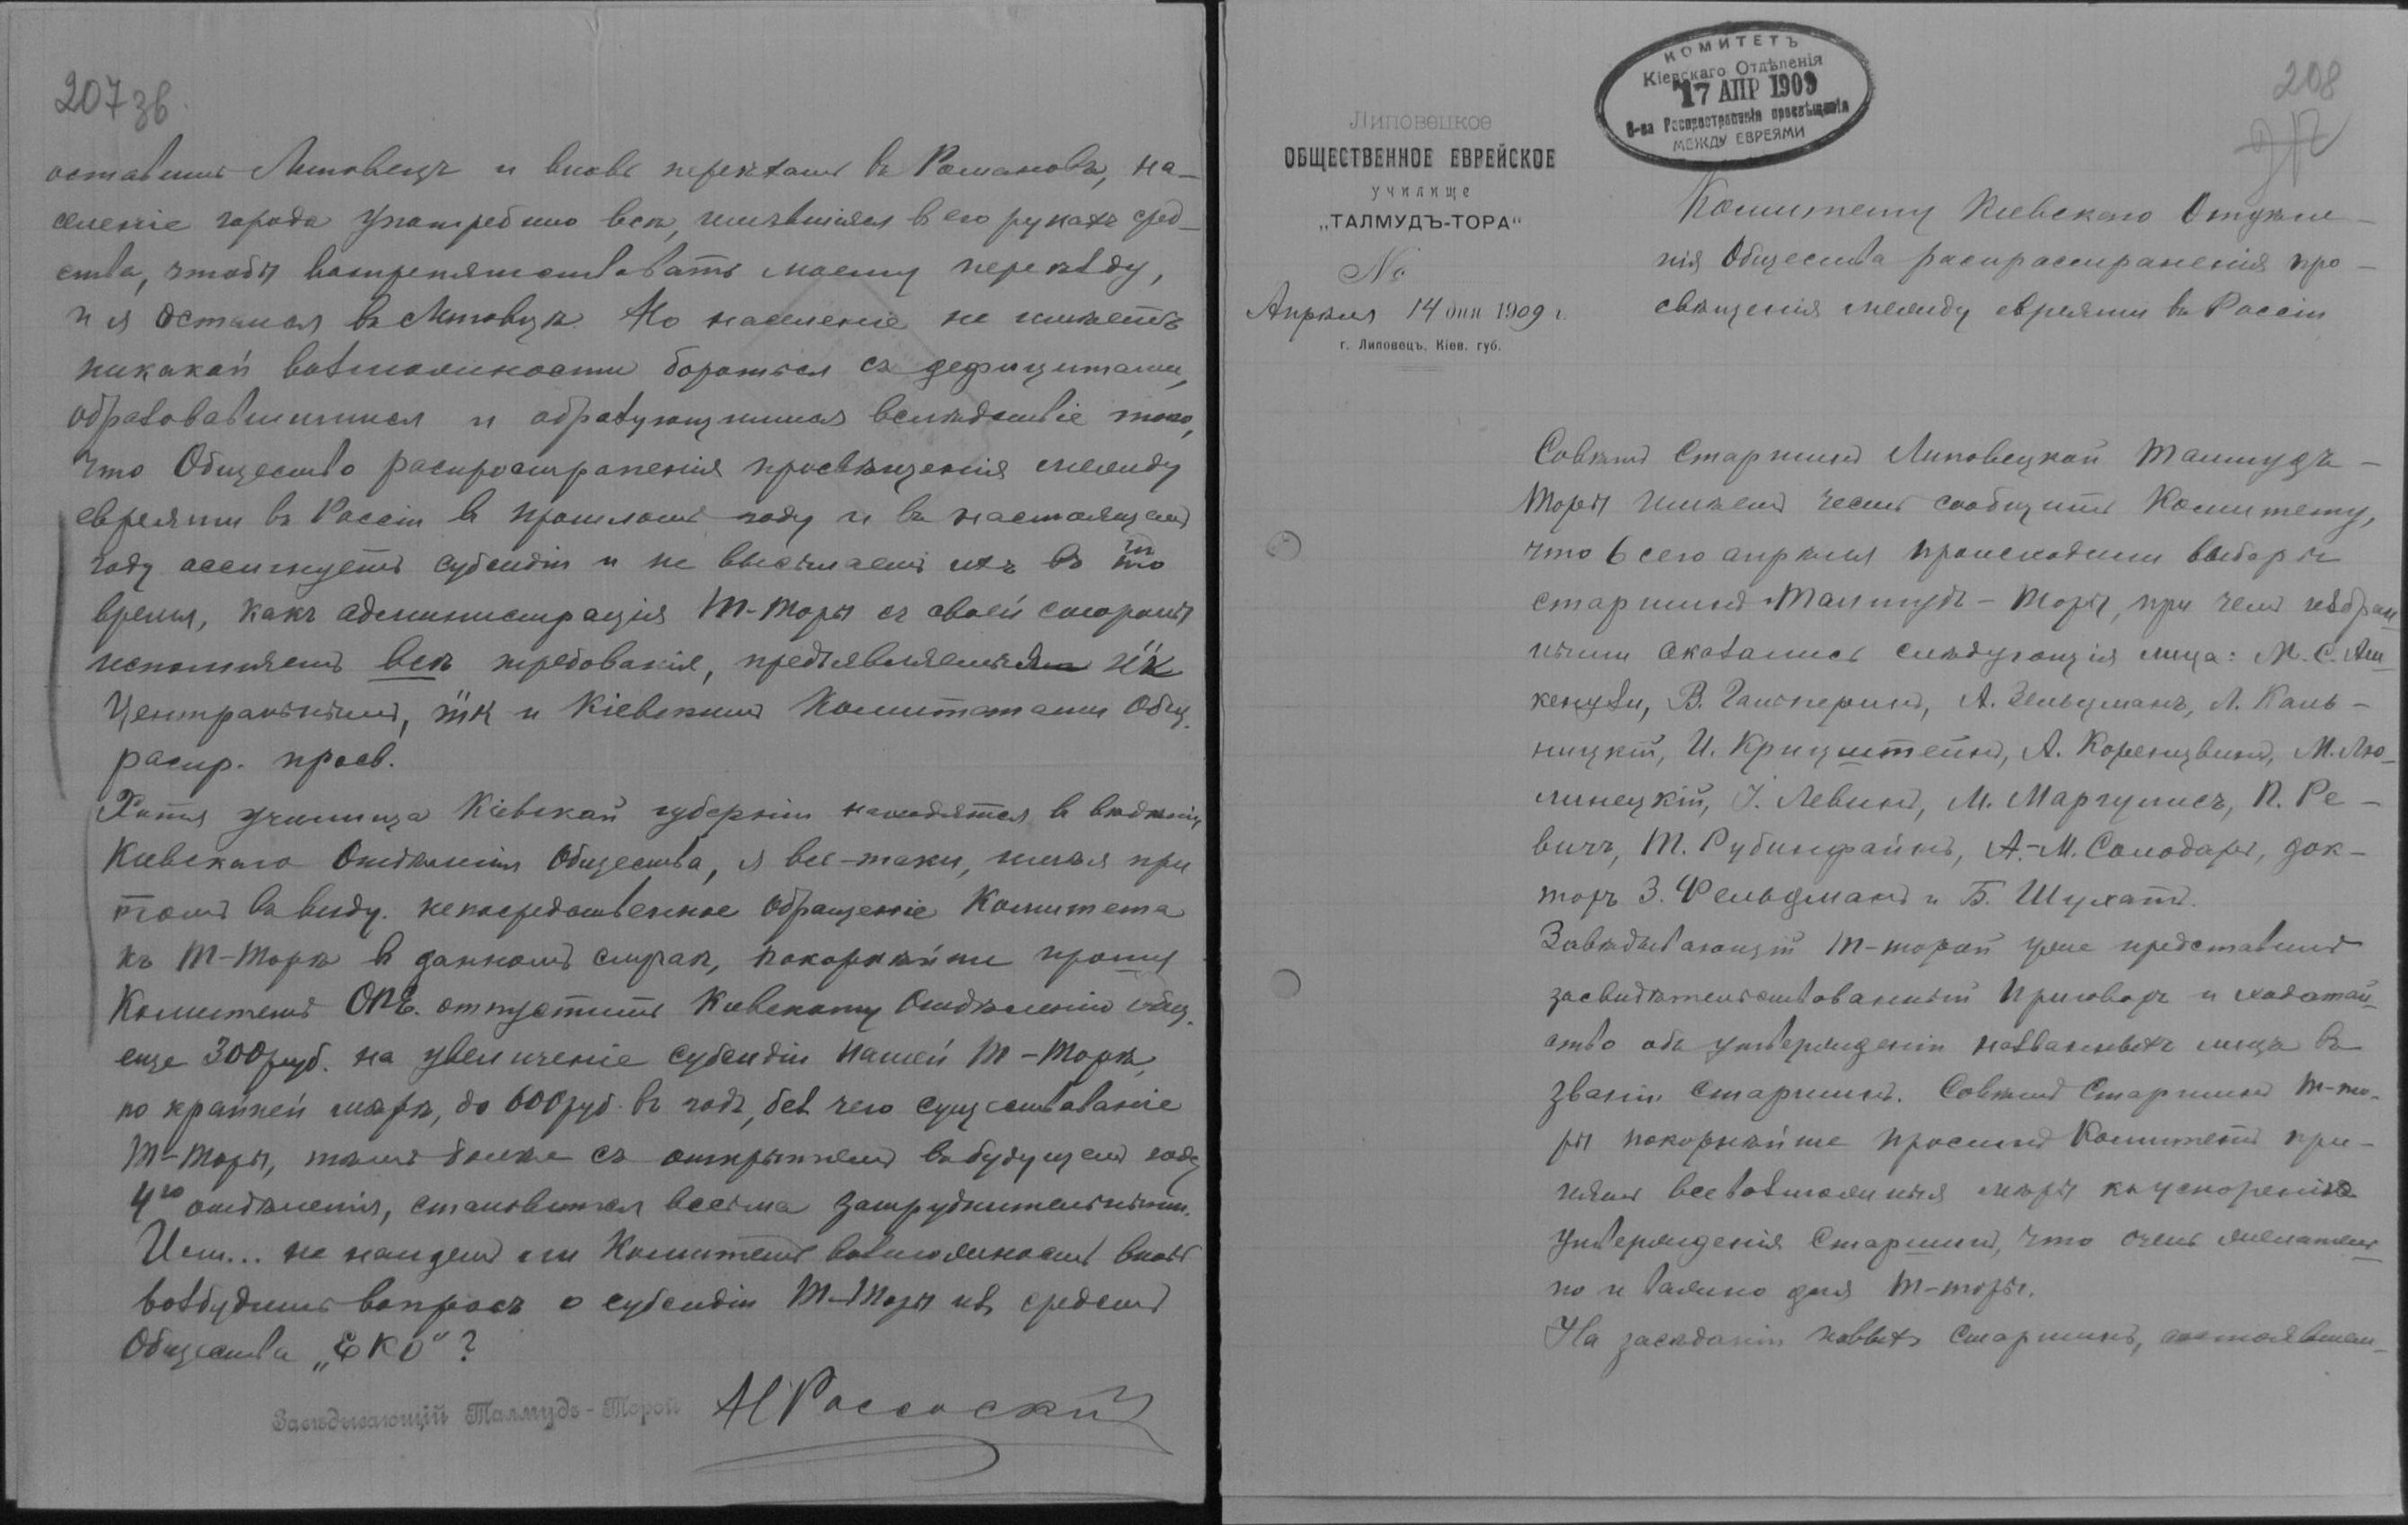 207 зв.
оставить Липовецъ и вновь переѣхать въ Романовъ, на-
селеніе города употребило всѣ, имѣвшіяся в его рукахъ сред-
ства, чтобы воспрепятствовать моему переѣзду,
и я остался въ Липовцѣ. Но населеніе не имѣетъ
никакой возможности бороться съ дефицитами,
образовавшимися и образующимися вслѣдствіе того,
что Общество распространенія просвѣщенія между
евреями въ Россіи в прошломъ году и въ настоящемъ
году ассигнуетъ субсидіи и не высылаетъ ихъ въ то
время, какъ администрація Т-Торы съ своей стороны
исполняетъ всѣ требованія, предъявляемыя
Центральнымъ, и Кіевскимъ Комитетами Общ.
распр. просв.
Хотя училища Кіевской губерніи находятся в вѣдѣніи
Кіевскаго Отдѣленія Общества, я все-таки, имѣя при
томъ въ виду непосредственное обращеніе Комитета
къ Т-Торѣ в данномъ случаѣ, покорнѣйше прошу
Комитетъ ОПЕ. отпустить Кіевскому Отдѣленію общ.
еще 300 руб. на увеличеніе субсидіи нашей Т-Торѣ,
по крайней мѣрѣ, до 600 руб. въ годъ, без чего существованіе
Т-Торы, тѣмъ болѣе съ открытіемъ въ будущемъ году
4го отдѣленія, становится весьма затруднительнымъ.
Или... не найдетъ ли Комитетъ возможность вновь
возбудить вопросъ о субсидіи Т-Торы из средствъ
Общества „ЕКО“?
Завѣдывающій Талмудъ-Торой Н Россоскій
КОМИТЕТЪ
Кіевскаго Отдѣленія
17 АПР 1909
О-ва Распространенія просвѣщенія
МЕЖДУ ЕВРЕЯМИ
208
Липовецкое
ОБЩЕСТВЕННОЕ ЕВРЕЙСКОЕ
училище
„ТАЛМУДЪ-ТОРА“
№
Апрѣля 14 дня 1909 г.
г. Липовецъ, Кіев. губ.
Комитету Кіевскаго Отдѣле-
нія Общества распространенія про-
свѣщенія между евреями въ Россіи
Совѣтъ Старшинъ Липовецкой Талмудъ-
Торы имѣетъ честь сообщить Комитету,
что 6 сего апрѣля происходили выборы
старшинъ Талмудъ-Торы, при чемъ избран-
ными оказались слѣдующія лица: М. С. Аш-
кенази, В. Гальперинъ, А. Зельцманъ, Л. Каль-
ницкій, И. Крицштейнъ, А. Коренцвитъ, М. Лю-
линецкій, І. Левинъ, М. Маргулисъ, П. Ре-
вичъ, Т. Рубинфайнъ, А.-М. Солодарь, док-
торъ З. Фельдманъ и Б. Шухатъ.
Завѣдывающій Т-торой уже представилъ
засвидѣтельствованный приговоръ и ходатай-
ство объ утвержденіи названныхъ лицъ въ
званіи Старшинъ. Совѣтъ Старшинъ Т-то-
ры покорнѣйше проситъ Комитетъ при-
нять всевозможныя мѣры къ ускоренію
утвержденія Старшинъ, что очень желатель-
но и важно для Т-торы.
На засѣданіи новыхъ Старшинъ, состоявшем-